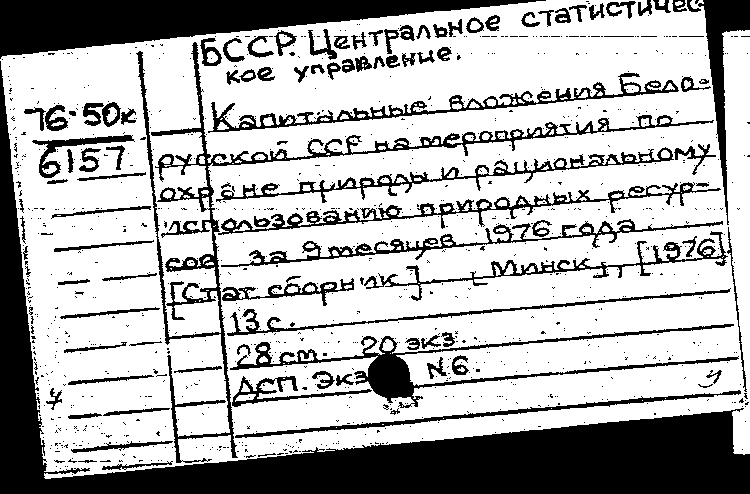 БССР. Центральное статистичес-
кое управление.
76-50к
6157
Капитальные вложения Бело-
русской ССР на мероприятия по
охране природы и рациональному
использованию природных ресур-
сов за 9 месяцев 1976 года.
[Стат сборник]. [Минск], [1976].
13 с.
28 см. 20 экз.
ДСП. Экз N6.